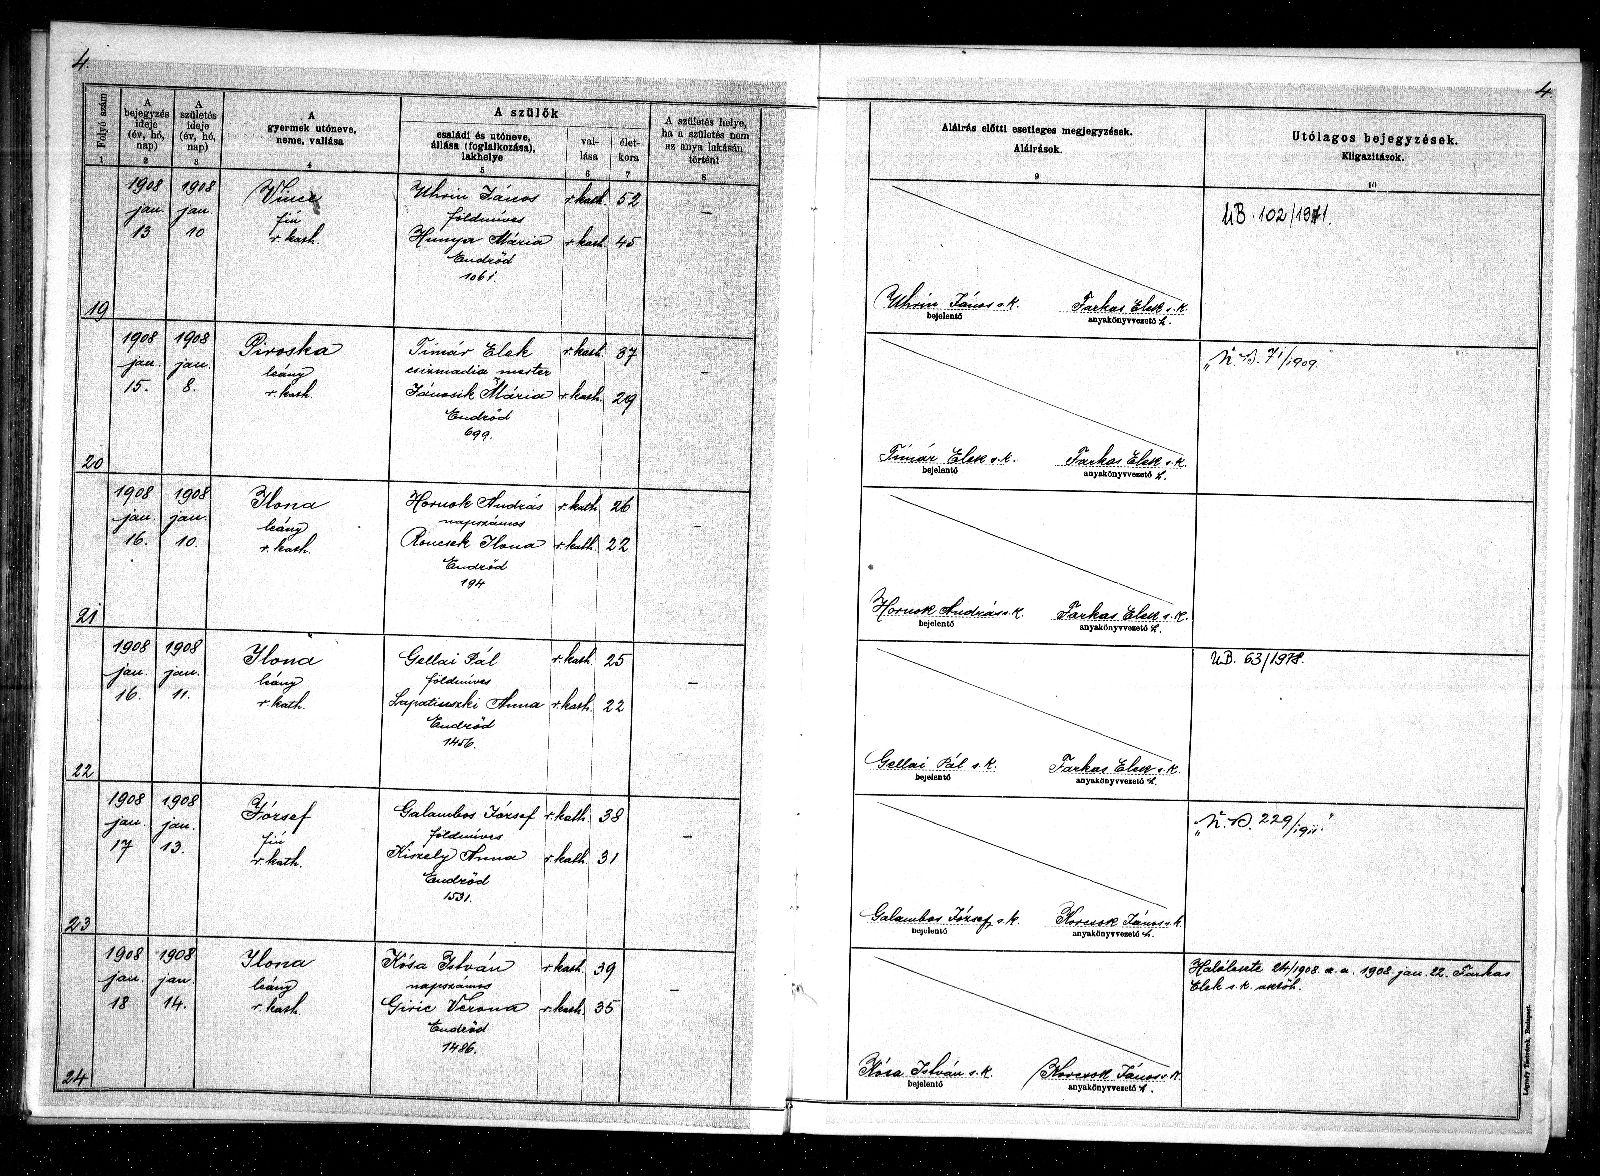 4
4
Folyó szám
A bejegyzés ideje (év, hó, nap)
A születés ideje (év, hó, nap)
A gyermek utóneve, neme, vallása
A szülők
családi és utóneve, állása (foglalkozása), lakhelye
vallása
életkora
A születés helye, ha a születés nem az anya lakásán történt
Aláírás előtti esetleges megjegyzések.
Aláírások.
Utólagos bejegyzések.
Kiigazítások.
1 2 3 4 5 6 7 8 9 10
19
1908 jan. 13
1908 jan. 10
Vince
fiú
r. kath.
Uhrin János r. kath. 52
földmíves
Hunya Mária r. kath. 45
Endrőd
1061.
—
Uhrin János s. k. Farkas Elek s. k.
bejelentő anyakönyvvezető h.
UB. 102/1971.
20
1908 jan. 15.
1908 jan. 8.
Piroska
leány
r. kath.
Tímár Elek r. kath. 37
csizmadia mester
Jánosik Mária r. kath. 29
Endrőd
699.
—
Tímár Elek s. k. Farkas Elek s. k.
bejelentő anyakönyvvezető h.
21
1908 jan. 16.
1908 jan. 10.
Ilona
leány
r. kath.
Hornok András r. kath. 26
napszámos
Roncsek Ilona r. kath. 22
Endrőd
194
—
Hornok András s. k. Farkas Elek s. k.
bejelentő anyakönyvvezető h.
22
1908 jan. 16.
1908 jan. 11.
Ilona
leány
r. kath.
Gellai Pál r. kath. 25
földmíves
Anna r. kath. 22
Endrőd
1456.
—
Gellai Pál s. k. Farkas Elek s. k.
bejelentő anyakönyvvezető h.
UB. 63/1978.
23
1908 jan. 17
1908 jan. 13.
József
fiú
r. kath.
Galambos József r. kath. 38
földmíves
Kiszely Anna r. kath. 31
Endrőd
1531.
—
Galambos József s. k. Korcsok János s. k.
bejelentő anyakönyvvezető h.
24
1908 jan. 18
1908 jan. 14.
Ilona
leány
r. kath.
Kósa István r. kath. 39
napszámos
Giric Verona r. kath. 35
Endrőd
1486.
—
Kósa István s. k. Korcsok János s. k.
bejelentő anyakönyvvezető h.
Halálesete 24/1908 a. a. 1908. jan. 22. Farkas
Elek s. k. aktőh.